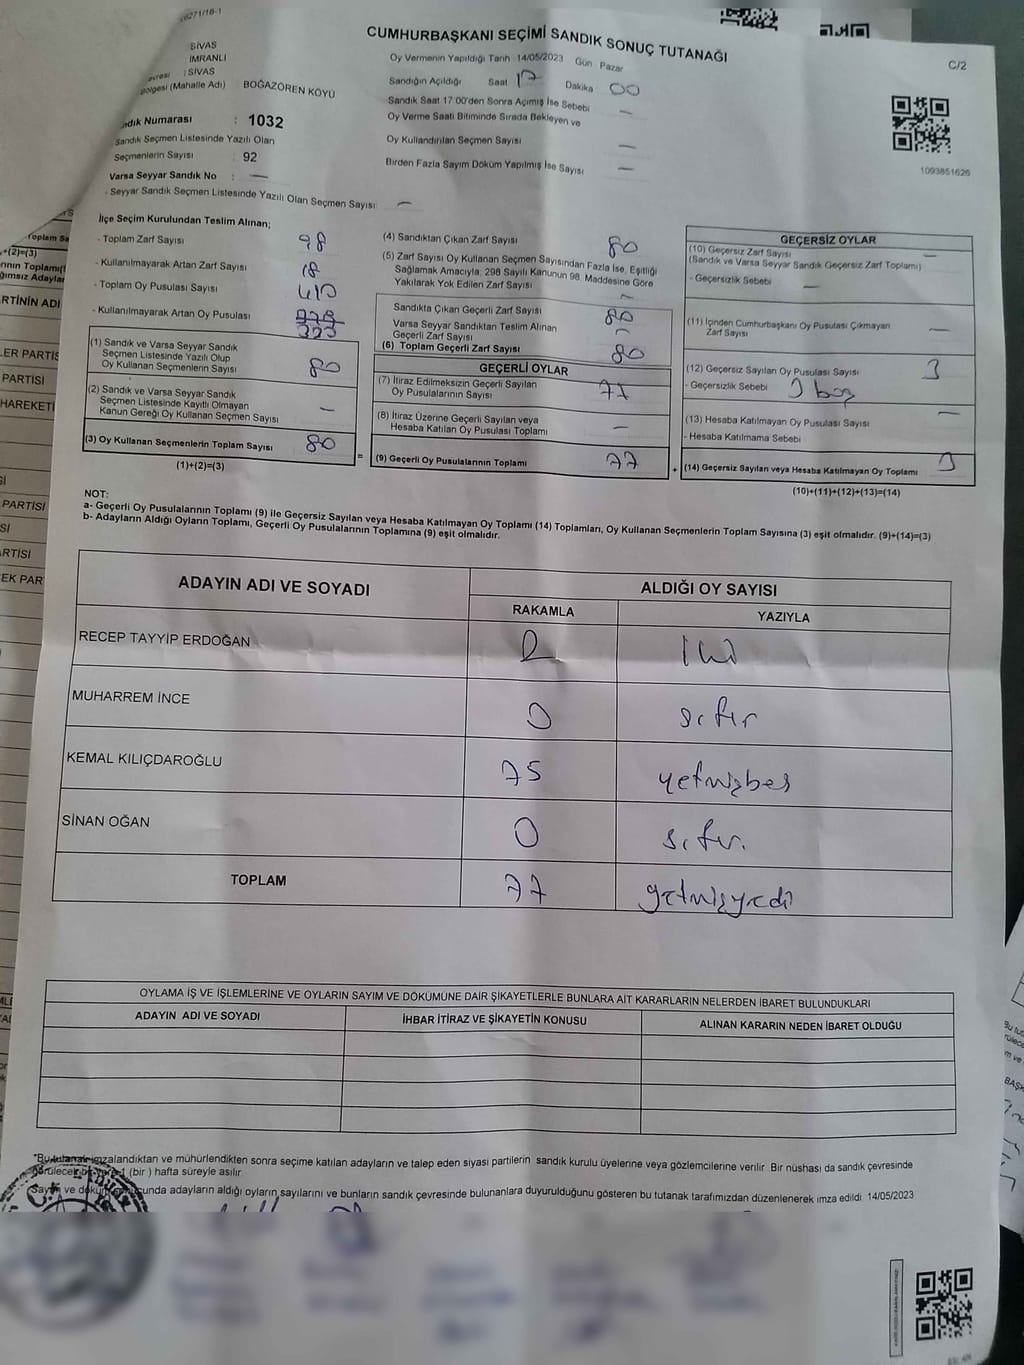 CUMHURBAŞKANI SEÇİMİ SANDIK SONUÇ TUTANAĞI
C/2
SİVAS
İMRANLI
: SİVAS
(Mahalle Adı) BOĞAZÖREN KÖYÜ
Numarası : 1032
Sandık Seçmen Listesinde Yazılı Olan
Seçmenlerin Sayısı : 92
Varsa Seyyar Sandık No : —
- Seyyar Sandık Seçmen Listesinde Yazılı Olan Seçmen Sayısı: —
Oy Vermenin Yapıldığı Tarih 14/05/2023 Gün Pazar
Sandığın Açıldığı Saat 17 Dakika 00
Sandık Saat 17:00'den Sonra Açılmış İse Sebebi —
Oy Verme Saati Bitiminde Sırada Bekleyen ve
Oy Kullandırılan Seçmen Sayısı —
Birden Fazla Sayım Döküm Yapılmış İse Sayısı —
1093851626
İlçe Seçim Kurulundan Teslim Alınan;
- Toplam Zarf Sayısı 98
- Kullanılmayarak Artan Zarf Sayısı 18
- Toplam Oy Pusulası Sayısı 410
- Kullanılmayarak Artan Oy Pusulası
(1) Sandık ve Varsa Seyyar Sandık
Seçmen Listesinde Yazılı Olup
Oy Kullanan Seçmenlerin Sayısı 80
(2) Sandık ve Varsa Seyyar Sandık
Seçmen Listesinde Kayıtlı Olmayan
Kanun Gereği Oy Kullanan Seçmen Sayısı —
(3) Oy Kullanan Seçmenlerin Toplam Sayısı 80
(1)+(2)=(3)
=
(4) Sandıktan Çıkan Zarf Sayısı 80
(5) Zarf Sayısı Oy Kullanan Seçmen Sayısından Fazla İse, Eşitliği
Sağlamak Amacıyla, 298 Sayılı Kanunun 98. Maddesine Göre
Yakılarak Yok Edilen Zarf Sayısı —
Sandıkta Çıkan Geçerli Zarf Sayısı 80
Varsa Seyyar Sandıktan Teslim Alınan
Geçerli Zarf Sayısı —
(6) Toplam Geçerli Zarf Sayısı 80
GEÇERLİ OYLAR
(7) İtiraz Edilmeksizin Geçerli Sayılan
Oy Pusulalarının Sayısı 77
(8) İtiraz Üzerine Geçerli Sayılan veya
Hesaba Katılan Oy Pusulası Toplamı —
(9) Geçerli Oy Pusulalarının Toplamı 77
+
GEÇERSİZ OYLAR
(10) Geçersiz Zarf Sayısı —
(Sandık ve Varsa Seyyar Sandık Geçersiz Zarf Toplamı)
- Geçersizlik Sebebi —
(11) İçinden Cumhurbaşkanı Oy Pusulası Çıkmayan
Zarf Sayısı —
(12) Geçersiz Sayılan Oy Pusulası Sayısı 3
- Geçersizlik Sebebi 3 boş
(13) Hesaba Katılmayan Oy Pusulası Sayısı —
- Hesaba Katılmama Sebebi
(14) Geçersiz Sayılan veya Hesaba Katılmayan Oy Toplamı 3
(10)+(11)+(12)+(13)=(14)
NOT:
a- Geçerli Oy Pusulalarının Toplamı (9) ile Geçersiz Sayılan veya Hesaba Katılmayan Oy Toplamı (14) Toplamları, Oy Kullanan Seçmenlerin Toplam Sayısına (3) eşit olmalıdır. (9)+(14)=(3)
b- Adayların Aldığı Oyların Toplamı, Geçerli Oy Pusulalarının Toplamına (9) eşit olmalıdır.
ADAYIN ADI VE SOYADI ALDIĞI OY SAYISI
RAKAMLA YAZIYLA
RECEP TAYYİP ERDOĞAN 2 iki
MUHARREM İNCE 0 sıfır
KEMAL KILIÇDAROĞLU 75 yetmişbeş
SİNAN OĞAN 0 sıfır.
TOPLAM 77 yetmişyedi
OYLAMA İŞ VE İŞLEMLERİNE VE OYLARIN SAYIM VE DÖKÜMÜNE DAİR ŞİKAYETLERLE BUNLARA AİT KARARLARIN NELERDEN İBARET BULUNDUKLARI
ADAYIN ADI VE SOYADI İHBAR İTİRAZ VE ŞİKAYETİN KONUSU ALINAN KARARIN NEDEN İBARET OLDUĞU
*Bu tutanak imzalandıktan ve mühürlendikten sonra seçime katılan adayların ve talep eden siyasi partilerin sandık kurulu üyelerine veya gözlemcilerine verilir. Bir nüshası da sandık çevresinde
görülecek bir yere 1 (bir ) hafta süreyle asılır.
Sayım ve dökümü sonucunda adayların aldığı oyların sayılarını ve bunların sandık çevresinde bulunanlara duyurulduğunu gösteren bu tutanak tarafımızdan düzenlenerek imza edildi 14/05/2023